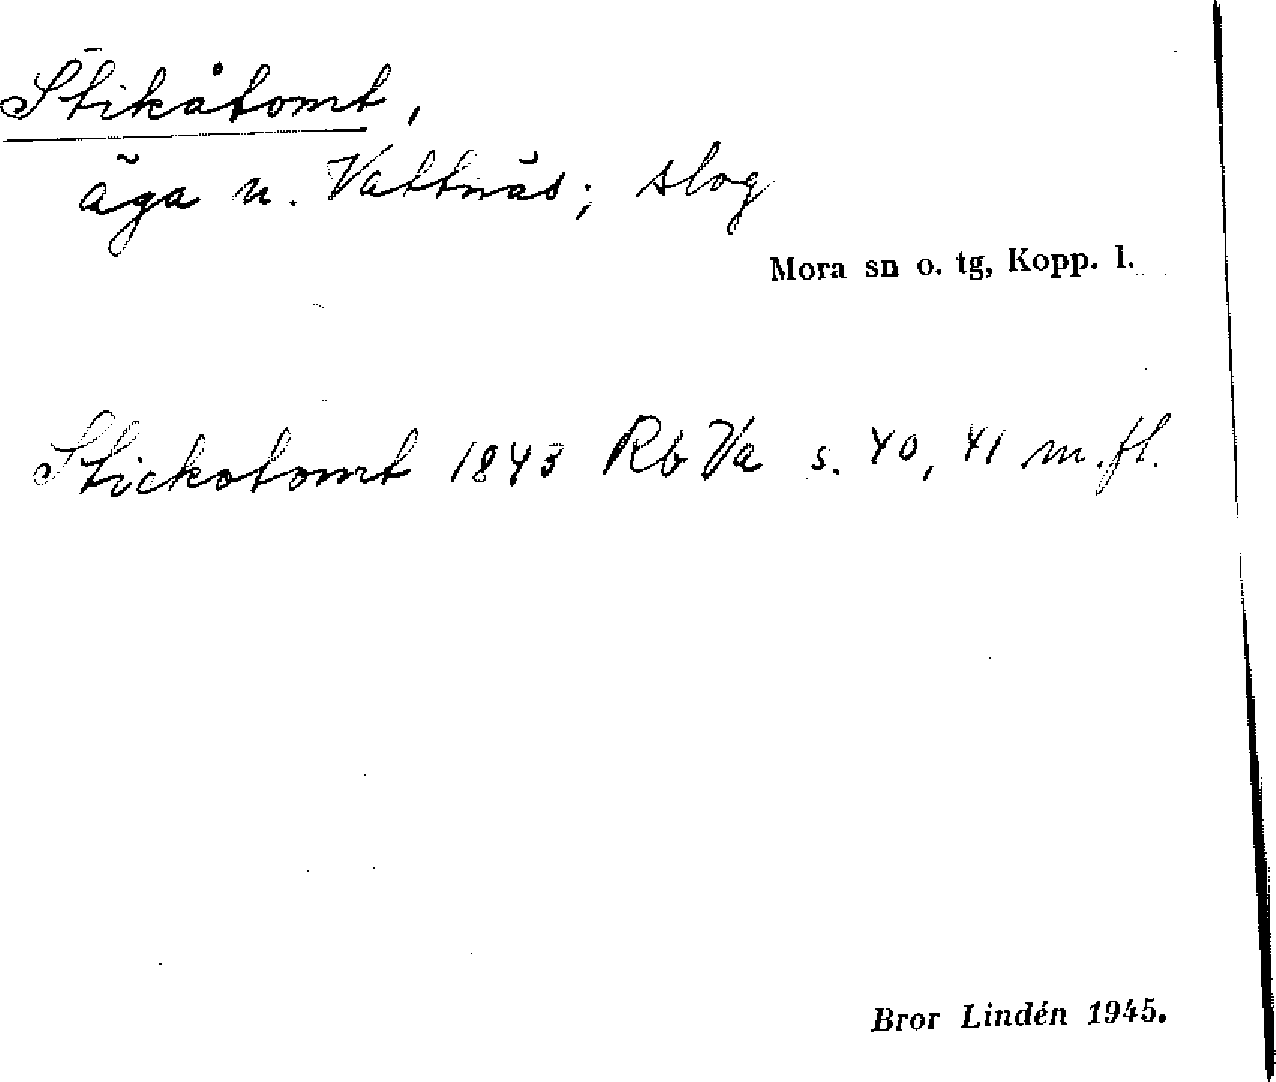 Stikåtomt,
äga n. Vattnäs; slog
Mora sn o. tg, Kopp. l.
Stickotomt 1843 Rb Va s. 40, 41 m.fl.
Bror Lindén 1945.